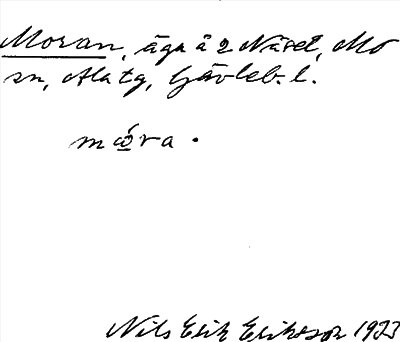 Moran, äga å 2 Näset, Mo
sn, Ala tg, Gävleb. l.
mɷ́ra .
Nils Erik Erikson 1933